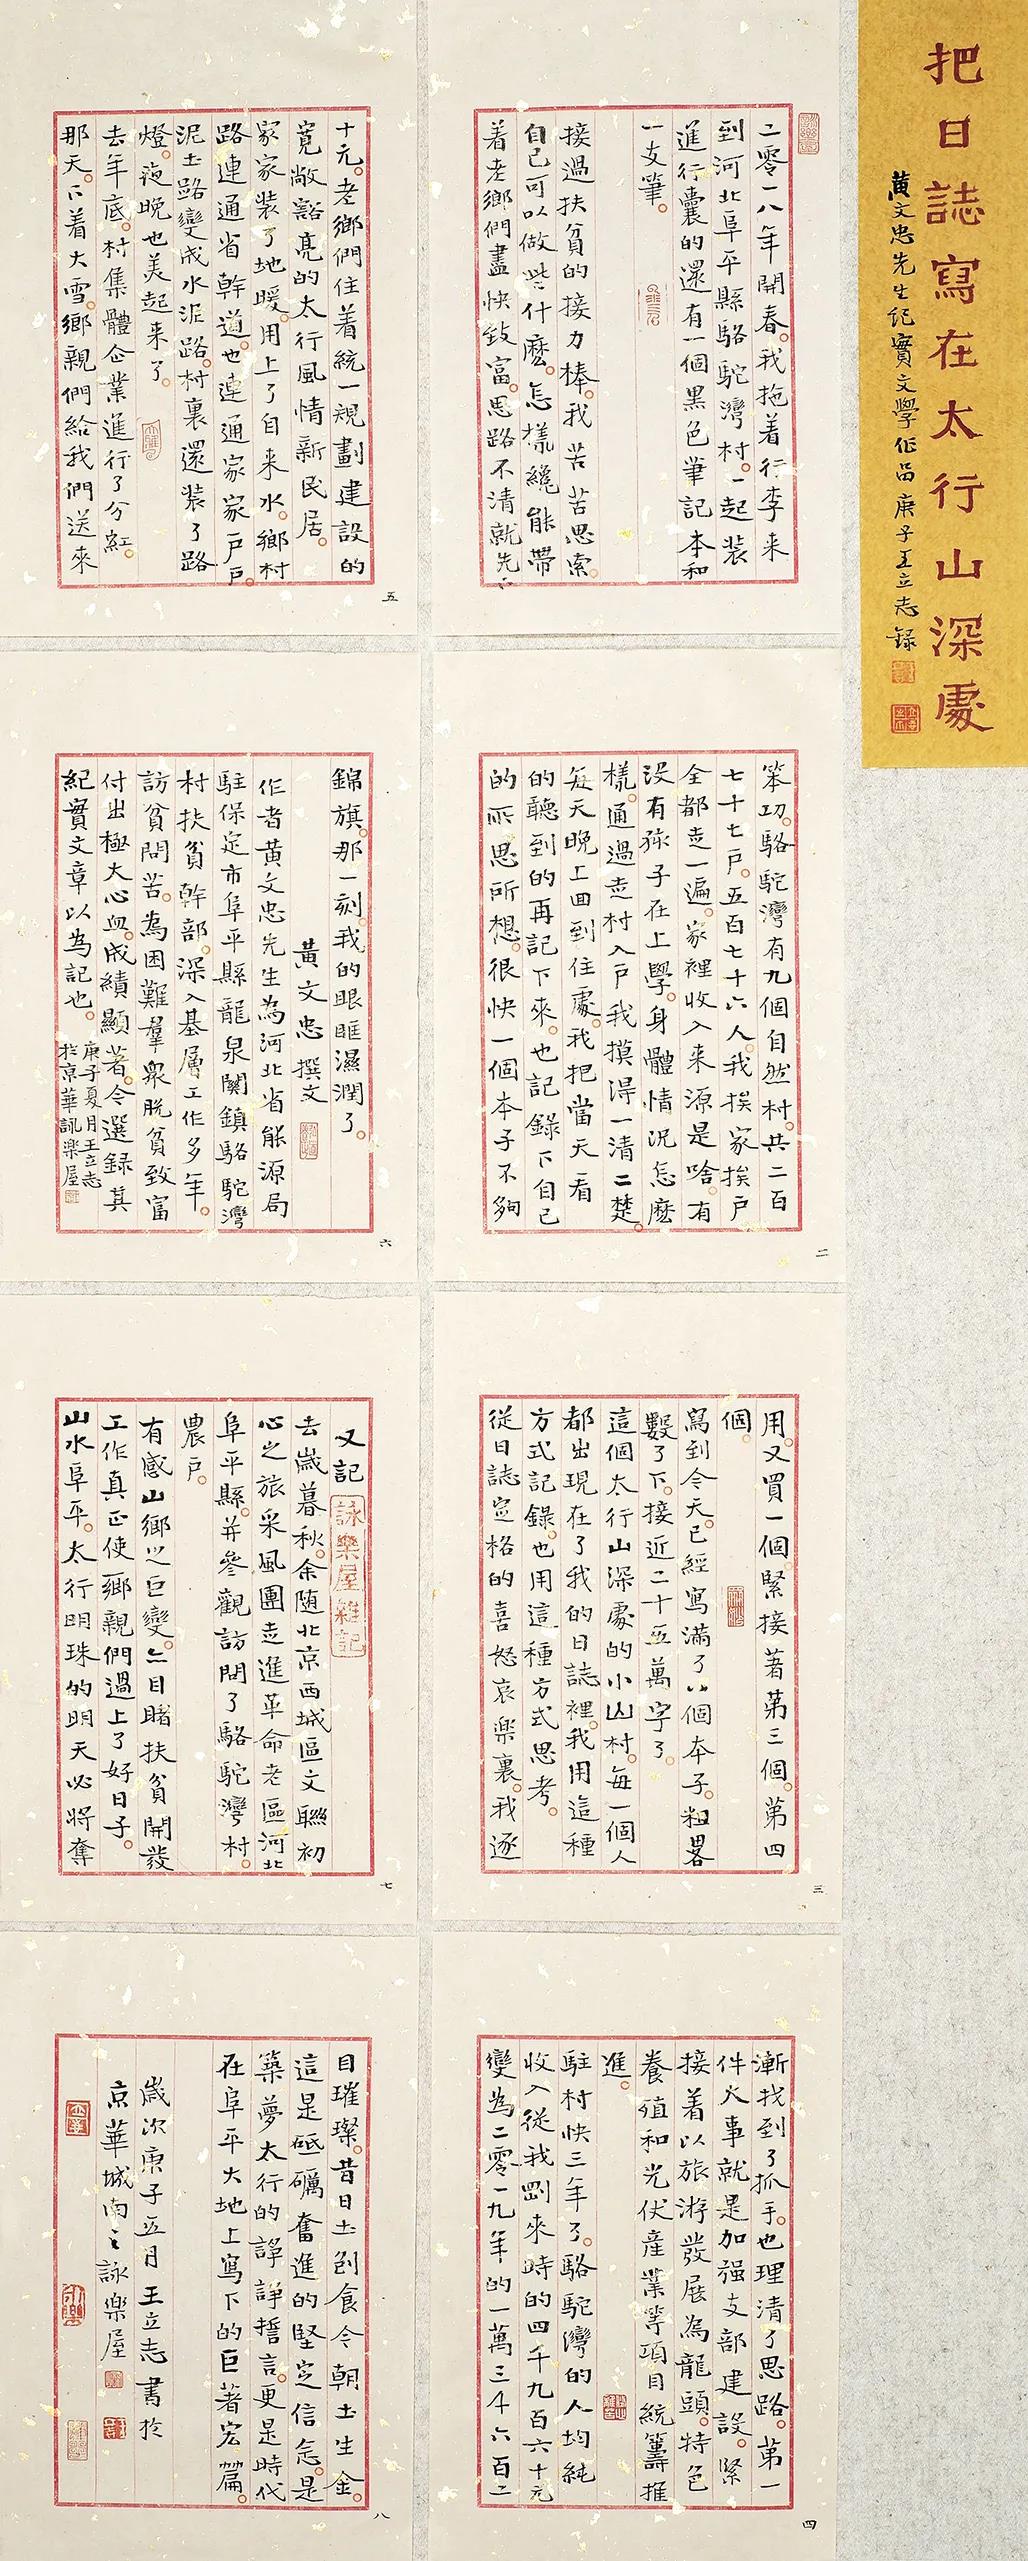 把日誌寫在太行山深處
黄文忠先生紀實文學作品庚子王立志録
二零一八年開春。我拖着行李来
到河北阜平縣駱駝灣村。一起裝
進行囊的還有一個黑色筆記本和
一支筆。
接過扶貧的接力棒。我苦苦思索
自已可以做些什麽。怎樣纔能帶
着老鄉們盡快致富。思路不清就先下
笨功。駱駝灣有九個自然村。共二百
七十七户。五百七十六人。我挨家挨户
全都走一遍。家裡收入来源是啥。有
没有孩子在上學。身體情况怎麽
樣。通過走村入户我摸得一清二楚。
每天晚上回到住處。我把當天看
的聽到的再記下來。也記錄下自己
的所思所想。很快一個本子不夠
用。又買一個。緊接著第三個。第四
個。
寫到今天。已經寫滿了八個本子。粗畧
數了下。接近二十五萬字了。
這個太行山深處的小山村。每一個人
都出現在了我的日誌裡。我用這種
方式記錄。也用這種方式思考。
從日誌宣格的喜怒哀樂裏。我逐
漸找到了抓手。也理清了思路。第一
件大事就是加强支部建設。緊
接着以旅游發展為龍頭。特色
養殖和光伏産業等項目統籌推
進。
駐村快三年了。駱駝灣的人均純
收入從我剛來時的四千九百六十元
變為二零一九年的一萬三千六百二
十元。老鄉們住着統一規劃建設的
寬敞豁亮的太行風情新民居。
家家装了地暖。用上了自来水。鄉村
路連通省幹道。也連通家家户户。
泥土路變成水泥路。村裏還装了路
燈。夜晚也美起來了。
去年底。村集體企業進行了分紅。
那天。下着大雪。鄉親們給我們送来
錦旗。那一刻。我的眼眶濕潤了。
黄文忠撰文
作者黄文忠先生為河北省能源局
駐保定市阜平縣龍泉關鎮駱駝灣
村扶貧幹部。深入基層工作多年。
訪貧問苦。為困難羣衆脱貧致富
付出極大心血。成績顯著。今選録其
紀實文章以為記也。
庚子夏月王立志
於京華詠樂屋
又記
詠樂屋雜記
去歲暮秋。余随北京西城區文聯初
心之旅采風團走進革命老區河北
阜平縣。并參觀訪問了駱駝灣村。
農户。
有感山鄉之巨變。亦目睹扶貧開發
工作真正使鄉親們過上了好日子。
山水阜平。太行明珠的明天必將奪
目璀璨。昔日土刨食今朝土生金。
這是砥礪奮進的堅定信念。是
築夢太行的諍諍誓言。更是時代
在阜平大地上寫下的巨著宏篇。
歲次庚子五月王立志書於
京華城南之詠樂屋
二
三
四
五
六
七
八